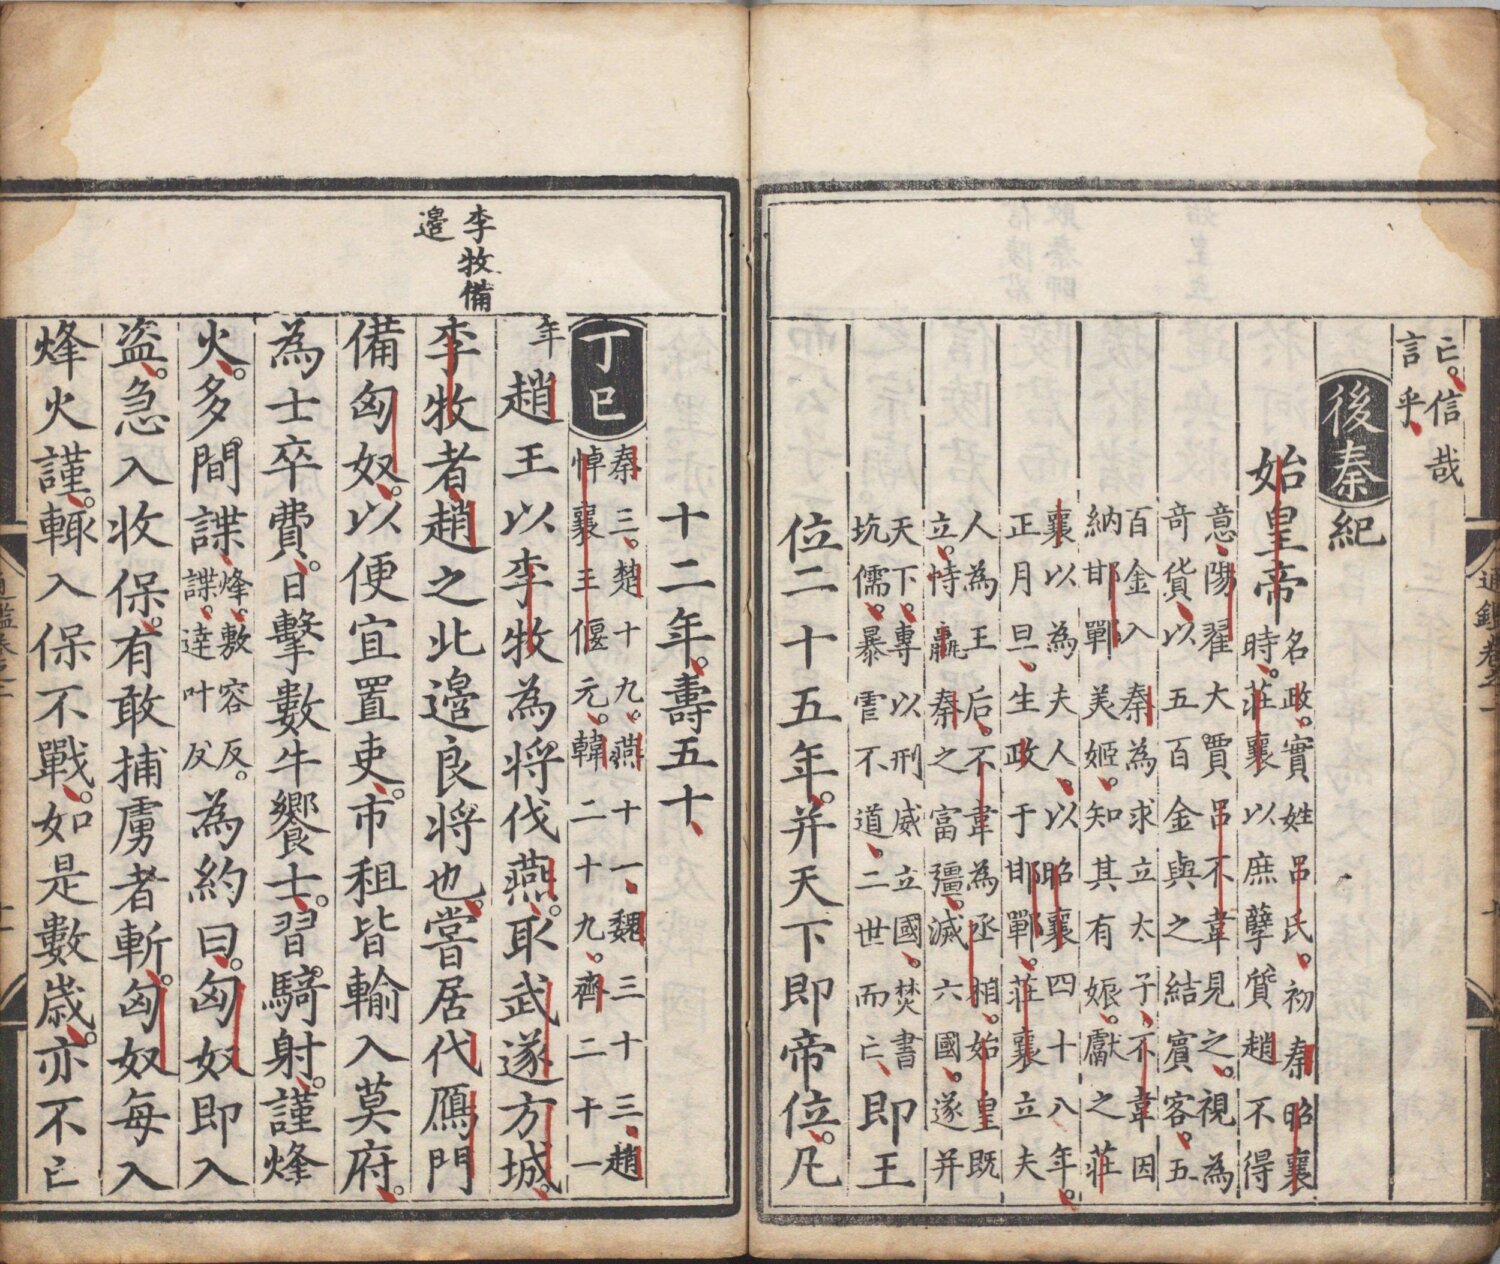 亡。信哉
言乎、
後秦紀
始皇帝
名政。實姓呂氏。初秦昭襄
時。莊襄以庶孽質趙不得
意、陽翟大賈呂不韋見之。視為
奇貨、以五百金與之結賓客。五
百金入秦為求立太子、不韋因
納邯鄲美姬。知其有娠。獻之莊
襄以為夫人。以昭襄四十八年。
正月旦、生政于邯鄲。莊襄立夫
人為王后。不韋為丞相。始皇既
立。恃嬴秦之富彊。滅六國。遂并
天下。專以刑威立國、焚書
坑儒。暴虐不道、二世而亡、
即王
位二十五年。并天下即帝位。凡
十二年。壽五十、
丁巳
秦三、楚十九。燕十一、魏三十三、趙
悼襄王偃元。韓二十九。齊二十一
年
趙王以李牧為將伐燕。取武遂方城。
李牧備
邊
李牧者、趙之北邊良將也。嘗居代鴈門
備匈奴。以便宜置吏。市租皆輸入莫府。
為士卒費。日擊數牛饗士。習騎射。謹烽
火。多間諜、
烽。敷容反。
諜。達叶反
為約曰。匈奴即入
盜。急入收保。有敢捕虜者斬。匈奴每入
烽火謹。輙入保不戰。如是數歲。亦不亡
通鑑卷之二